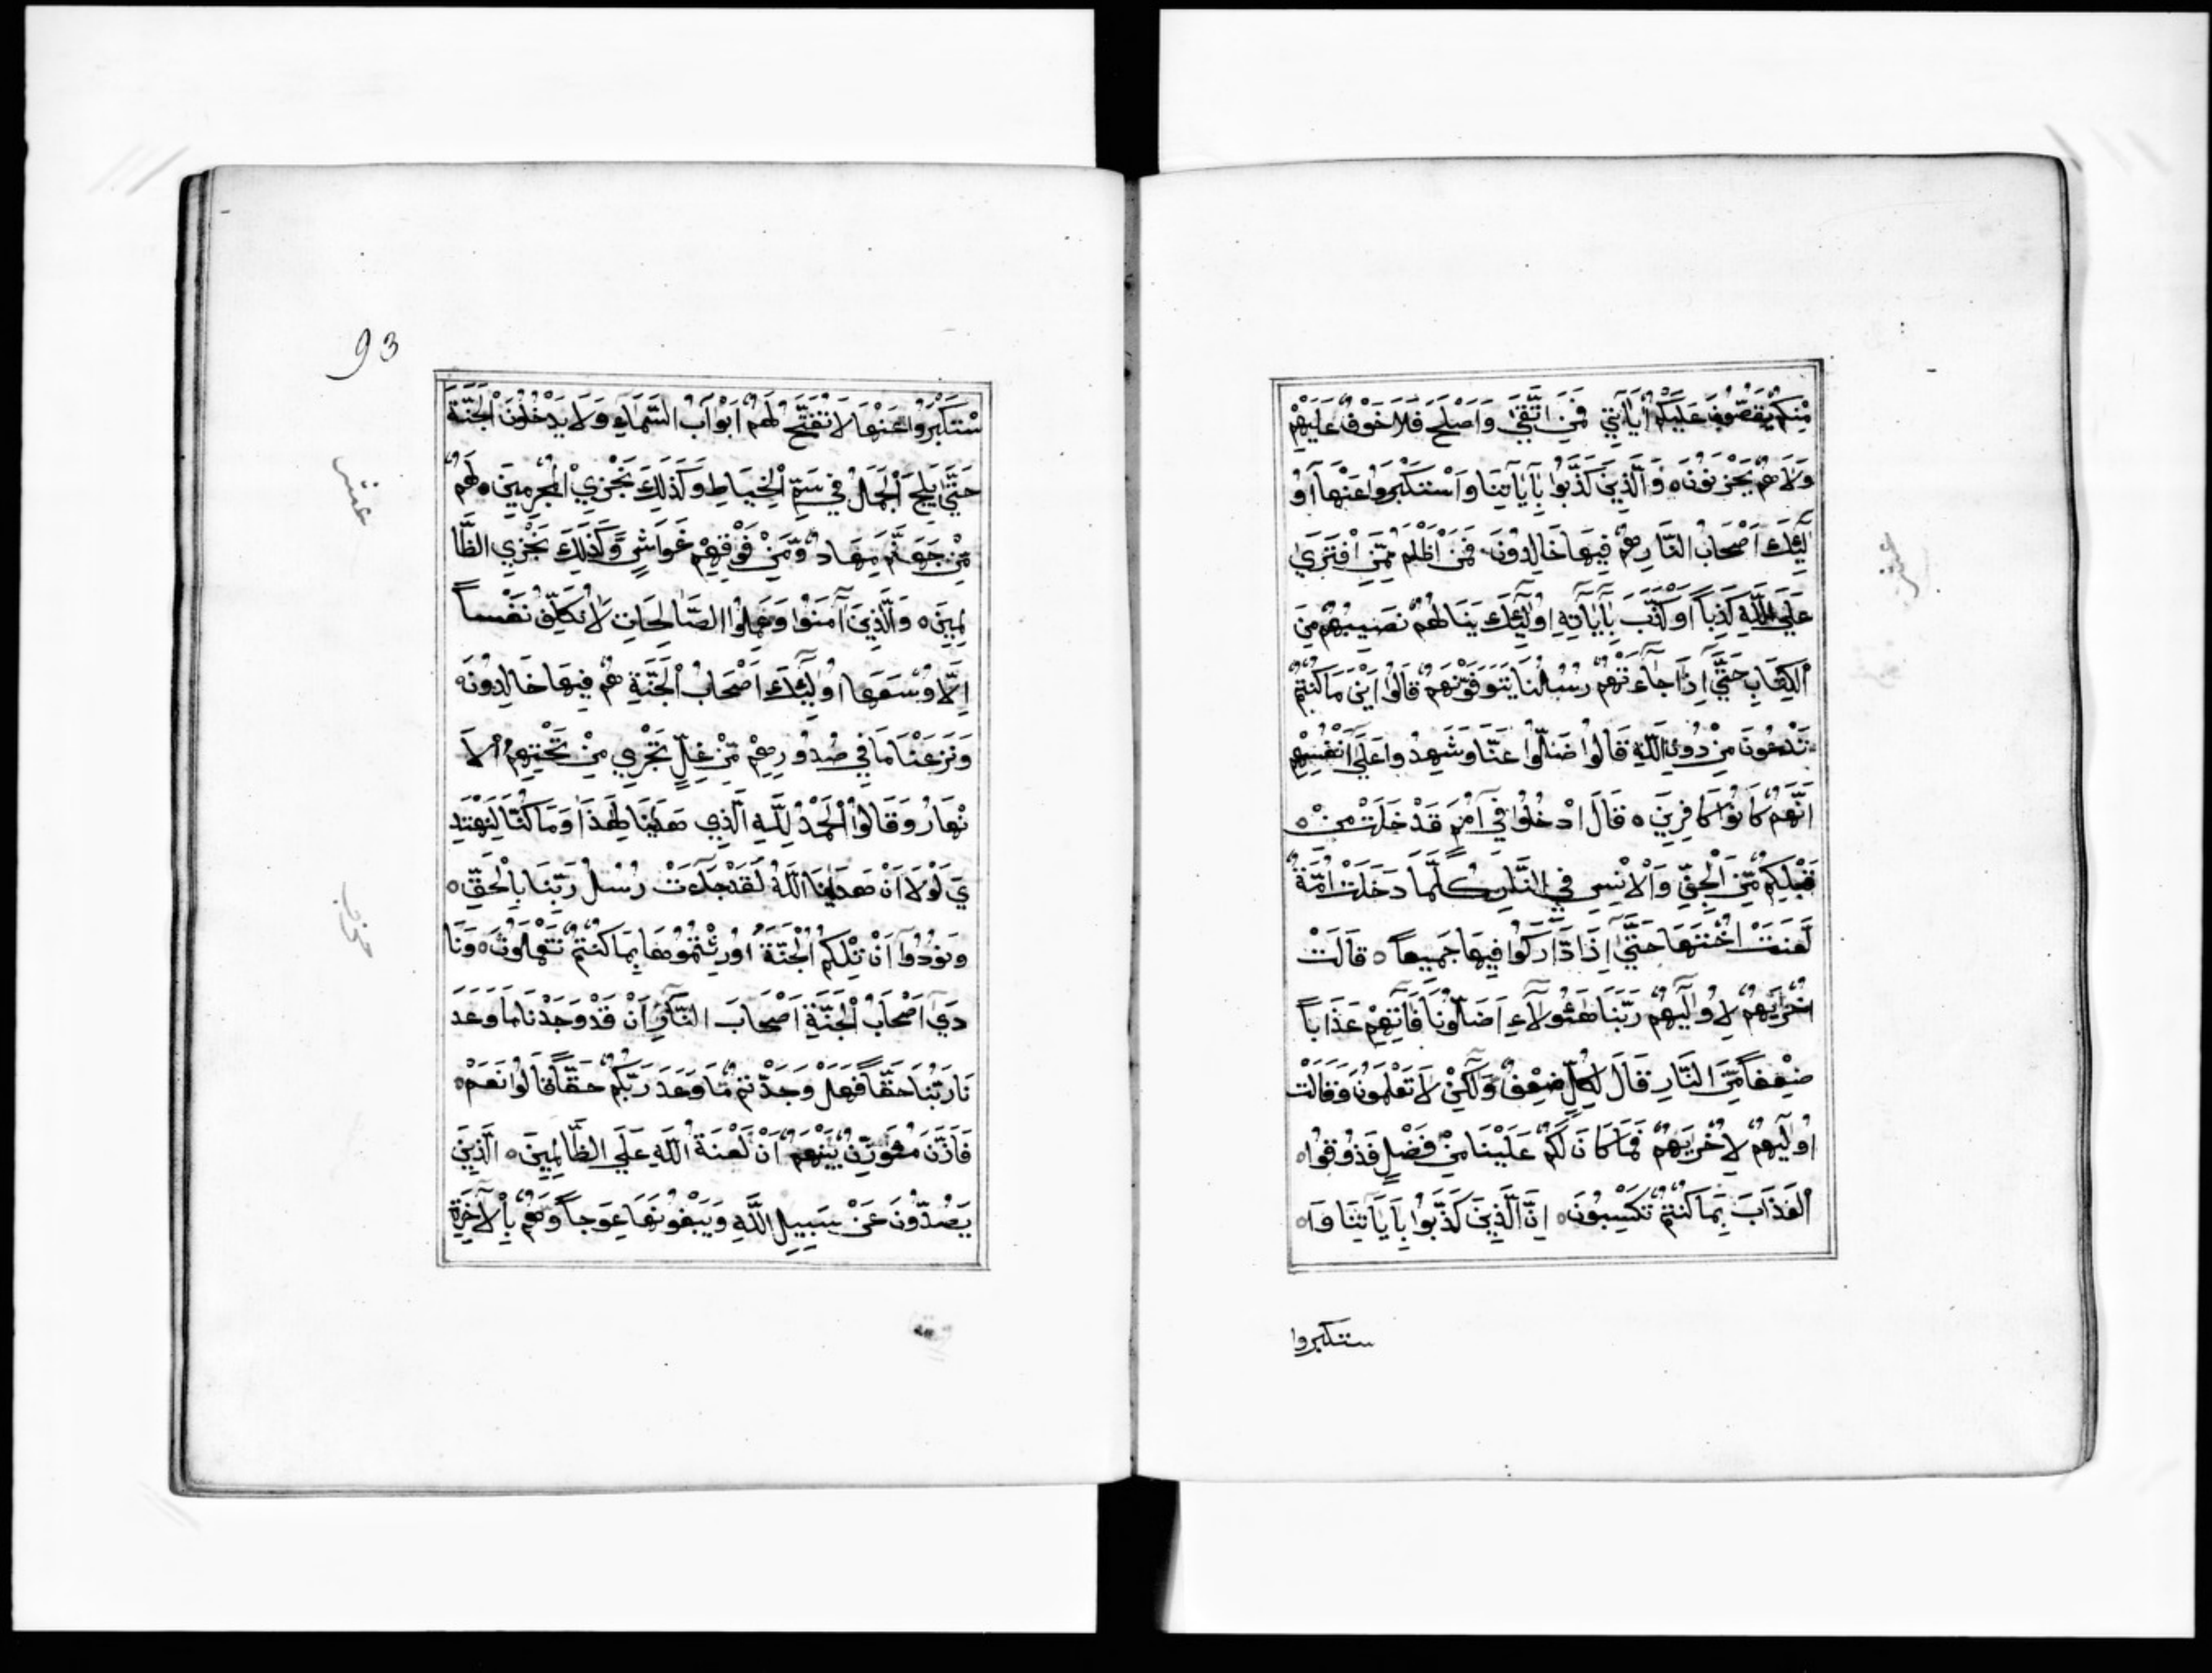 مِنْكُمْ يَقُصُّونَ عَلَيْكُمْ اٰيَاتِي فَمَنِ اتَّقٰى وَاَصْلَحَ فَلَا خَوْفٌ عَلَيْهِمْ
وَلَا هُمْ يَحْزَنُونَ ه وَالَّذِينَ كَذَّبُوا بِاٰيَاتِنَا وَاسْتَكْبَرُوا عَنْهَا اُو
لٰٓئِكَ اَصْحَابُ النَّارِ هُمْ فِيهَا خَالِدُونَ فَمَنْ اَظْلَمُ مِمَّنِ افْتَرٰي
عَلَي اللّٰهِ كَذِباً اَوْ كَذَّبَ بِاٰيَاتِهِ اُولٰٓئِكَ يَنَالُهُمْ نَصِيبُهُمْ مِنَ
الْكِتَابِ حَتَّي اِذَا جَاءَتْهُمْ رُسُلُنَا يَتَوَفَّوْنَهُمْ قَالُوا اَيْنَ مَا كُنْتُمْ
تَدْعُونَ مِنْ دُونِ اللّٰهِ قَالُوا ضَلُّوا عَنَّا وَشَهِدُوا عَلَي اَنْفُسِهِمْ
اَنَّهُمْ كَانُوا كَافِرِينَ ه قَالَ ادْخُلُوا فِي اُمَمٍ قَدْ خَلَتْ مِنْ ه
قَبْلِكُمْ مِنَ الْجِنِّ وَالْاِنْسِ فِي النَّارِ كُلَّمَا دَخَلَتْ اُمَّةٌ
لَعَنَتْ اُخْتَهَا حَتَّي اِذَا ادَّارَكُوا فِيهَا جَمِيعاً ه قَالَتْ
اُخْرٰيهُمْ لِاُولٰيهُمْ رَبَّنَا هٰؤُلَاءِ اَضَلُّونَا فَاٰتِهِمْ عَذَاباً
ضِعْفاً مِنَ النَّارِ قَالَ لِكُلٍّ ضِعْفٌ وَلٰكِنْ لَا تَعْلَمُونَ وَقَالَتْ
اُولٰيهُمْ لِاُخْرٰيهُمْ فَمَا كَانَ لَكُمْ عَلَيْنَا مِنْ فَضْلٍ فَذُوقُوا ه
الْعَذَابَ بِمَا كُنْتُمْ تَكْسِبُونَ ه اِنَّ الَّذِينَ كَذَّبُوا بِاٰيَاتِنَا وَا ه
ستكبروا
93
سْتَكْبَرُوا عَنْهَا لَا تُفَتَّحُ لَهُمْ اَبْوَابُ السَّمَاءِ وَلَا يَدْخُلُونَ الْجَنَّةَ
حَتّٰي يَلِجَ الْجَمَلُ فِي سَمِّ الْخِيَاطِ وَكَذٰلِكَ نَجْزِي الْمُجْرِمِينَ ه لَهُمْ
مِنْ جَهَنَّمَ مِهَادٌ وَمِنْ فَوْقِهِمْ غَوَاشٍ وَكَذٰلِكَ نَجْزِي الظَّا
لِمِينَ ه وَالَّذِينَ اٰمَنُوا وَعَمِلُوا الصَّالِحَاتِ لَا نُكَلِّفُ نَفْساً
اِلَّا وُسْعَهَا اُولٰٓئِكَ اَصْحَابُ الْجَنَّةِ هُمْ فِيهَا خَالِدُونَ ه
وَنَزَعْنَا مَا فِي صُدُورِهِمْ مِنْ غِلٍّ تَجْرِي مِنْ تَحْتِهِمُ الْاَ
نْهَارُ وَقَالُوا الْحَمْدُ لِلّٰهِ الَّذِي هَدٰينَا لِهٰذَا وَمَا كُنَّا لِنَهْتَدِ
يَ لَوْلَا اَنْ هَدٰينَا اللّٰهُ لَقَدْ جَاءَتْ رُسُلُ رَبِّنَا بِالْحَقِّ ه
وَنُودُوا اَنْ تِلْكُمُ الْجَنَّةُ اُورِثْتُمُوهَا بِمَا كُنْتُمْ تَعْمَلُونَ ه وَنَا
دٰي اَصْحَابُ الْجَنَّةِ اَصْحَابَ النَّارِ اَنْ قَدْ وَجَدْنَا مَا وَعَدَ
نَا رَبُّنَا حَقّاً فَهَلْ وَجَدْتُمْ مَا وَعَدَ رَبُّكُمْ حَقّاً قَالُوا نَعَمْ ه
فَاَذَّنَ مُؤَذِّنٌ بَيْنَهُمْ اَنْ لَعْنَةُ اللّٰهِ عَلَي الظَّالِمِينَ ه الَّذِينَ
يَصُدُّونَ عَنْ سَبِيلِ اللّٰهِ وَيَبْغُونَهَا عِوَجاً وَهُمْ بِالْاٰخِرَةِ